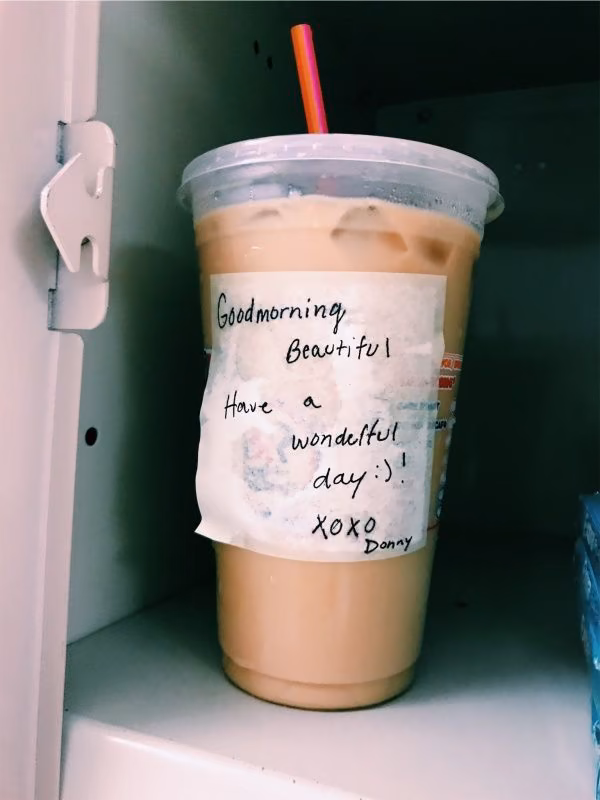 Goodmorning
Beautiful
Have a
wonderful
day :)!
XOXO
Donny